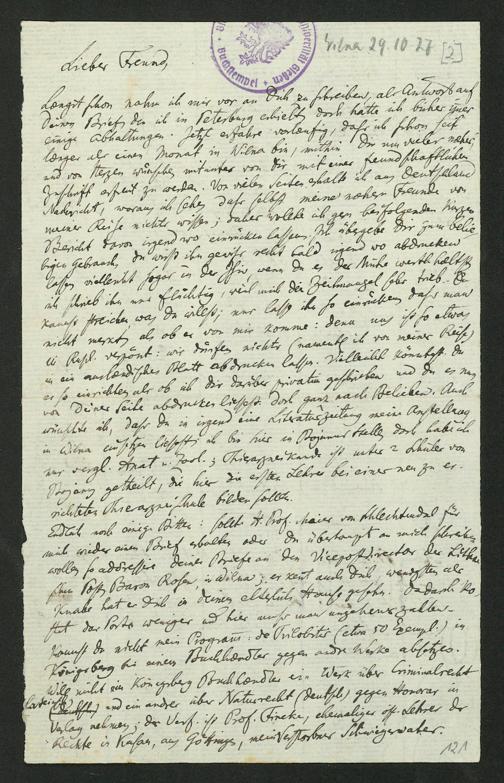 Wilna 29.10.27 [2]
Lieber Freund,
Längst schon nahm ich mir vor an Dich zu schreiben, als Antwort auf
Deinen Brief den ich in Petersburg erhielt, doch hatte ich bisher immer
einige Abhaltungen. Jetzt erfahre vorläufig, dass ich schon seit
länger als einem Monat in Wilna bin, mithin Dir um vieles näher,
und von Herzen wünsche, mitunter von Dir mit einer freundschaftlichen
Zuschrift erfreut zu werden. Von vielen Seiten erhalte ich aus Deutschland
Nachricht, woraus ich sehe, dass selbst meine nähern Freunde von
meiner Reise nichts wissen; daher wollte ich gern beifolgenden kurzen
Bericht davon irgend wo einrücken lassen. Ich übergebe Dir zum belie
bigen Gebrauch, Du wirst ihn gewiss recht bald irgend wo abdrucken
lassen, vielleicht sogar in der Isis, wenn du es der Mühe werth hältst.
Ich schrieb ihn nur flüchtig, weil mich der Zeitmangel sehr trieb. Du
kannst streichen was Du willst; nur lass ihn so einrücken dass man
nicht merkt, als ob er von mir komme: denn uns ist so etwas
in Russl. verpönt: wir dürfen nichts (namentl. ich von meiner Reise)
in ein ausländisches Blatt abdrucken lassen. Vielleicht könntest Du
es so einrichten als ob ich Dir darüber privatim geschrieben und Du es nun
von Deiner Seite abdrucken liessest. Doch ganz nach Belieben. Auch
wünschte ich, dass Du in irgend eine Literaturzeitung meine Anstellung
in Wilna einsetzen liessest; ich bin hier in Bojanus Stelle, doch habe ich
nur vergl. Anat. u. Zool.; Thierarzneikunde ist unter 2 Schüler von
Bojanus getheilt, die hier die ersten Lehrer bei einer neu zu er-
richteten Thierarzneischule bilden sollen.
Endlich noch einige Bitten: sollte H. Prof. Meier von Schlechtendal für
mich wieder einen Brief erhalten oder Du überhaupt an mich schreiben
wollen so addressire Deine Briefe an den Vicepostdirector der Litthau
schen Post, Baron Rosen in Wilna; er kent auch Dich, wenigstens als
Knabe hat er Dich in Deinem elterlich. Hause gesehn. Dadurch ko
stet das Porto weniger und hier muss man ungeheuer zahlen.
Kannst Du nicht mein Program: de Trilobitis (etwa 50 Exempl.) in
Königsberg bei einem Buchhändler gegen andre Werke absetzen.
Will nicht ein Königsberg. Buchhändler ein Werk über Criminalrecht
(lateinisch) und ein andres über Naturrecht (deutsch) gegen Honorar in
Verlag nehmen; der Verf. ist Prof. Fincke, ehemaliger öff. Lehrer der
Rechte in Kasan, aus Göttingen, mein verstorbner Schwiegervater.
121